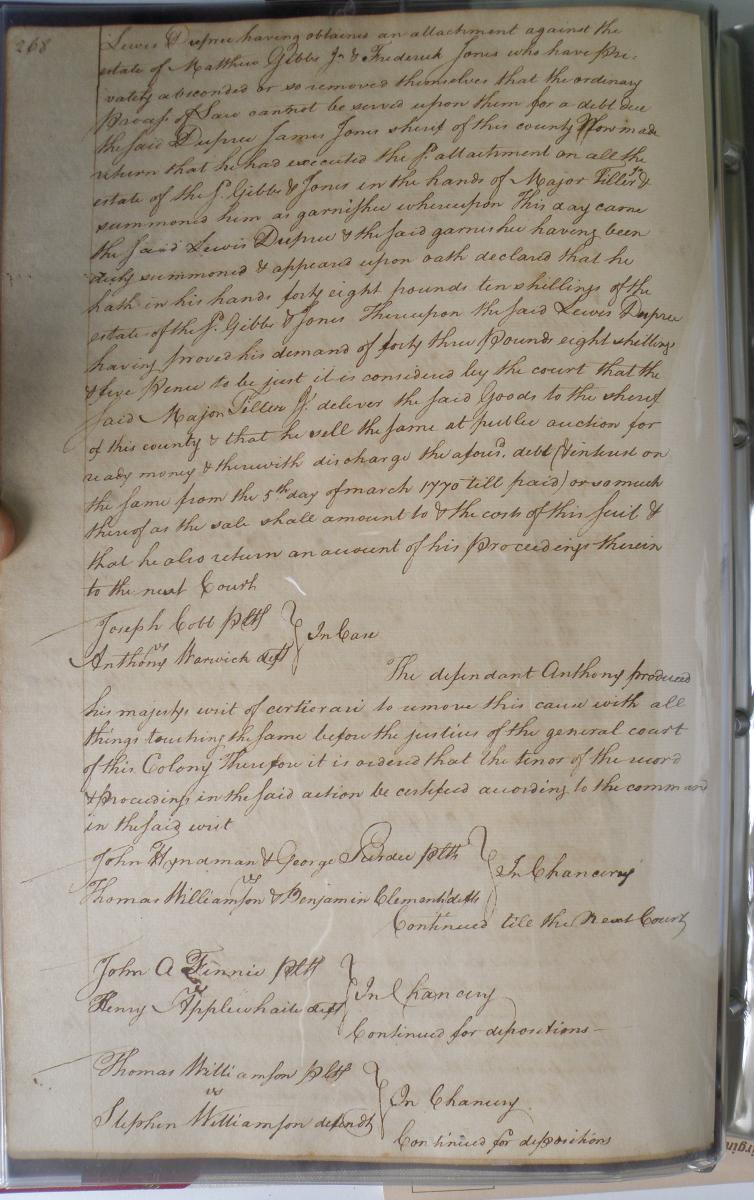 268
Lewis Dupree having obtained an attachment against the
estate of Matthew Gibbs Jr & Frederick Jones who have pri-
vately absconded or so removed themselves that the ordinary
Process of Law cannot be served upon them for a debt due
the said Dupree James Jones sherif of this county Now made
return that he had executed the sd. attachment on all the
estate of the sd. Gibbs & Jones in the hands of Major Tiller Jr &
summoned him as garnishee whereupon This day came
the said Lewis Dupree & the said garnishee having been
duly summoned & appeared upon oath declared that he
hath in his hands forty eight pounds ten shillings of the
estate of the sd. Gibbs & Jones Thereupon the said Lewis Dupree
having proved his demand of forty three Pounds eight shillings
& five Pence to be just it is considered by the court that the
said Major Tiller Jr. deliver the said Goods to the sherif
of this county & that he sell the same at public auction for
ready money & therewith discharge the afoused. debt (& interest on
the same from the 5th day of march 1770 till paid) or so much
thereof as the sale shall amount to & the costs of this suit &
that he also return an account of his Proceedings therein
to the next Court
Joseph Cobb pltf
vs
In Case
Anthony Warwick deft
The defendant Anthony produced
his majestys writ of certiorari to remove this cause with all
things touching the same before the justices of the general court
of this Colony Therefore it is ordered that the tenor of the record
& Proceedings in the said action be certified according to the command
in the said writ
John Hyndman & George Purdie pltfs
vs
In Chancery
Thomas Williamson & Benjamin Clements defts
Continued till the Next Court
John A Finnie pltf
vs
In Chancery
Henry Applewhaite deft
Continued for depositions
Thomas Williamson pltf
vs
In Chancery
Stephen Williamson defendt
Continued for depositions